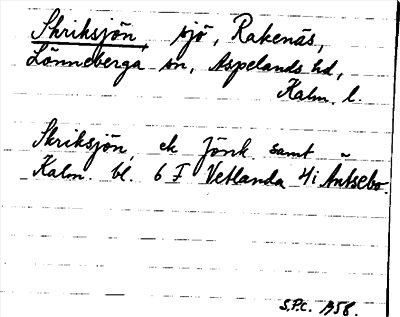 Skriksjön, sjö, Rakenäs,
Lönneberga sn, Aspelands hd,
Kalm. l.
Skriksjön, ek Jönk. samt
Kalm. bl. 6 F Vetlanda 4i Äntsebo.
S.P.C. 1958.